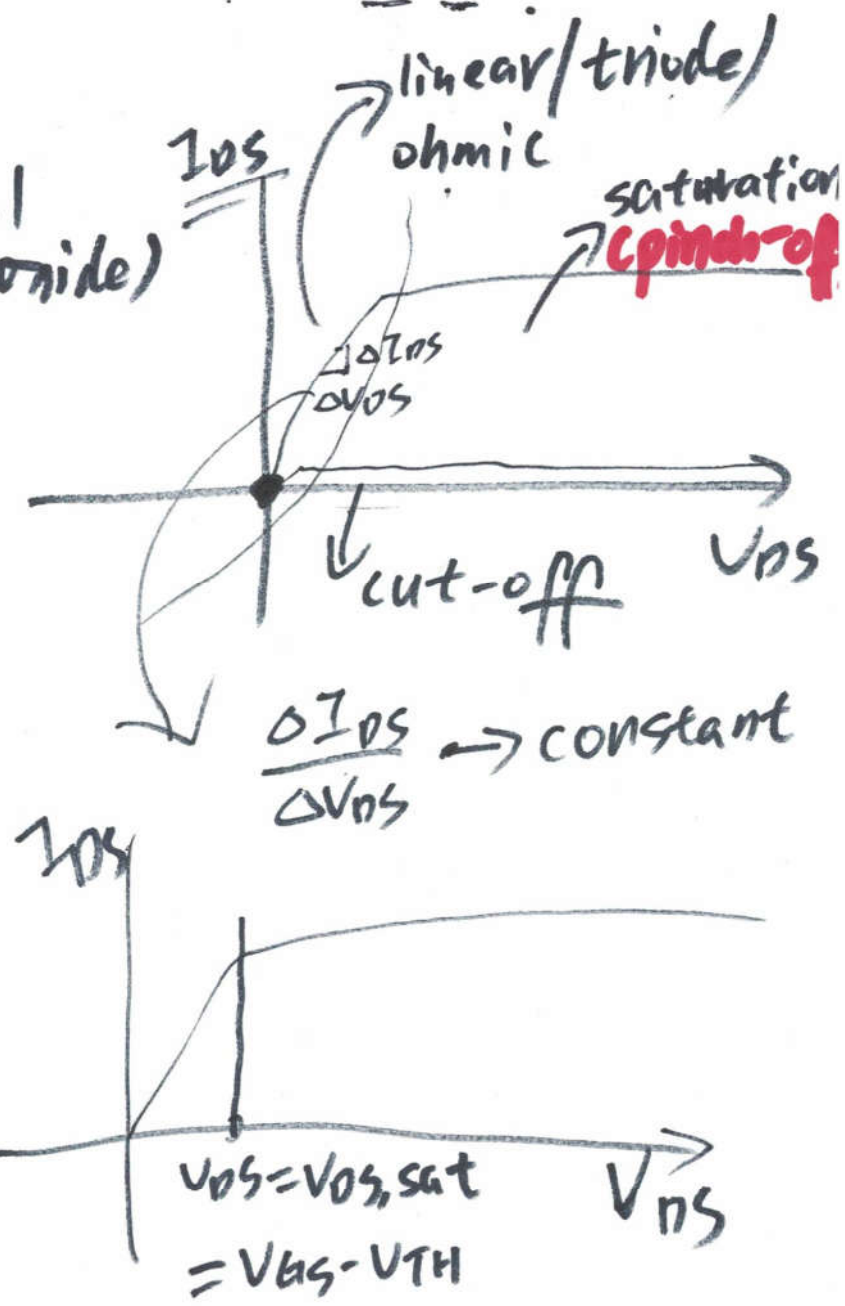 linear/triode)
ohmic
IDS
saturation
cpinch-of
ΔIDS
ΔVDS
VDS
cut-off
ΔIDS/ΔVDS → constant
IDS
VDS=VDS,sat
=VGS-VTH
VDS